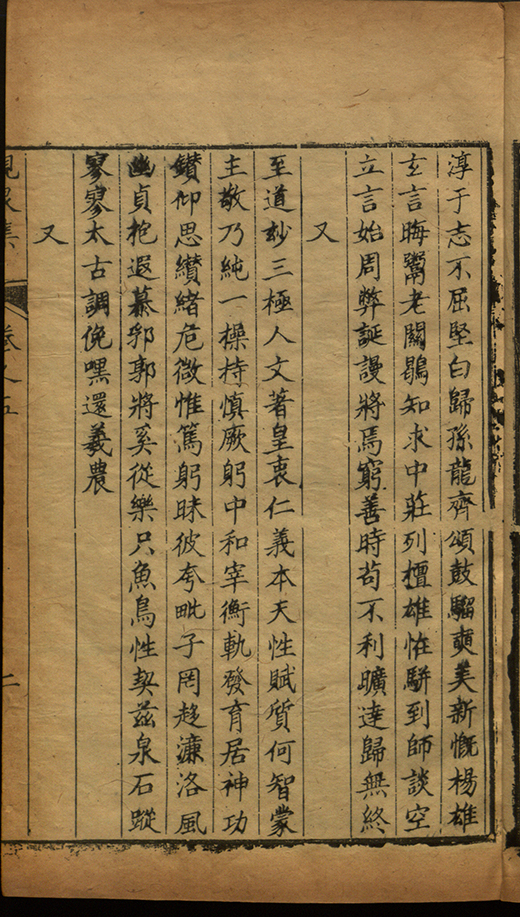 淳于志不屈堅白歸孫龍齊頌鼓騶奭美新慨楊雄
玄言晦鬻老關鶡知求中莊列檀雄恠駢到師談空
立言始周弊誕謾將焉窮善時苟不利曠達歸無終
又
至道玅三極人文著皇衷仁義本天性賦質何智蒙
主敬乃純一操持慎厥躬中和宰衡軌發育居神功
鑚仰思纉緒危微惟篤躬昧彼夸毗子罔趍濂洛風
幽貞抱遐慕邪郭將奚從樂只魚鳥性契兹泉石蹤
寥寥太古調俛嘿還羲農
又
卷之五
二